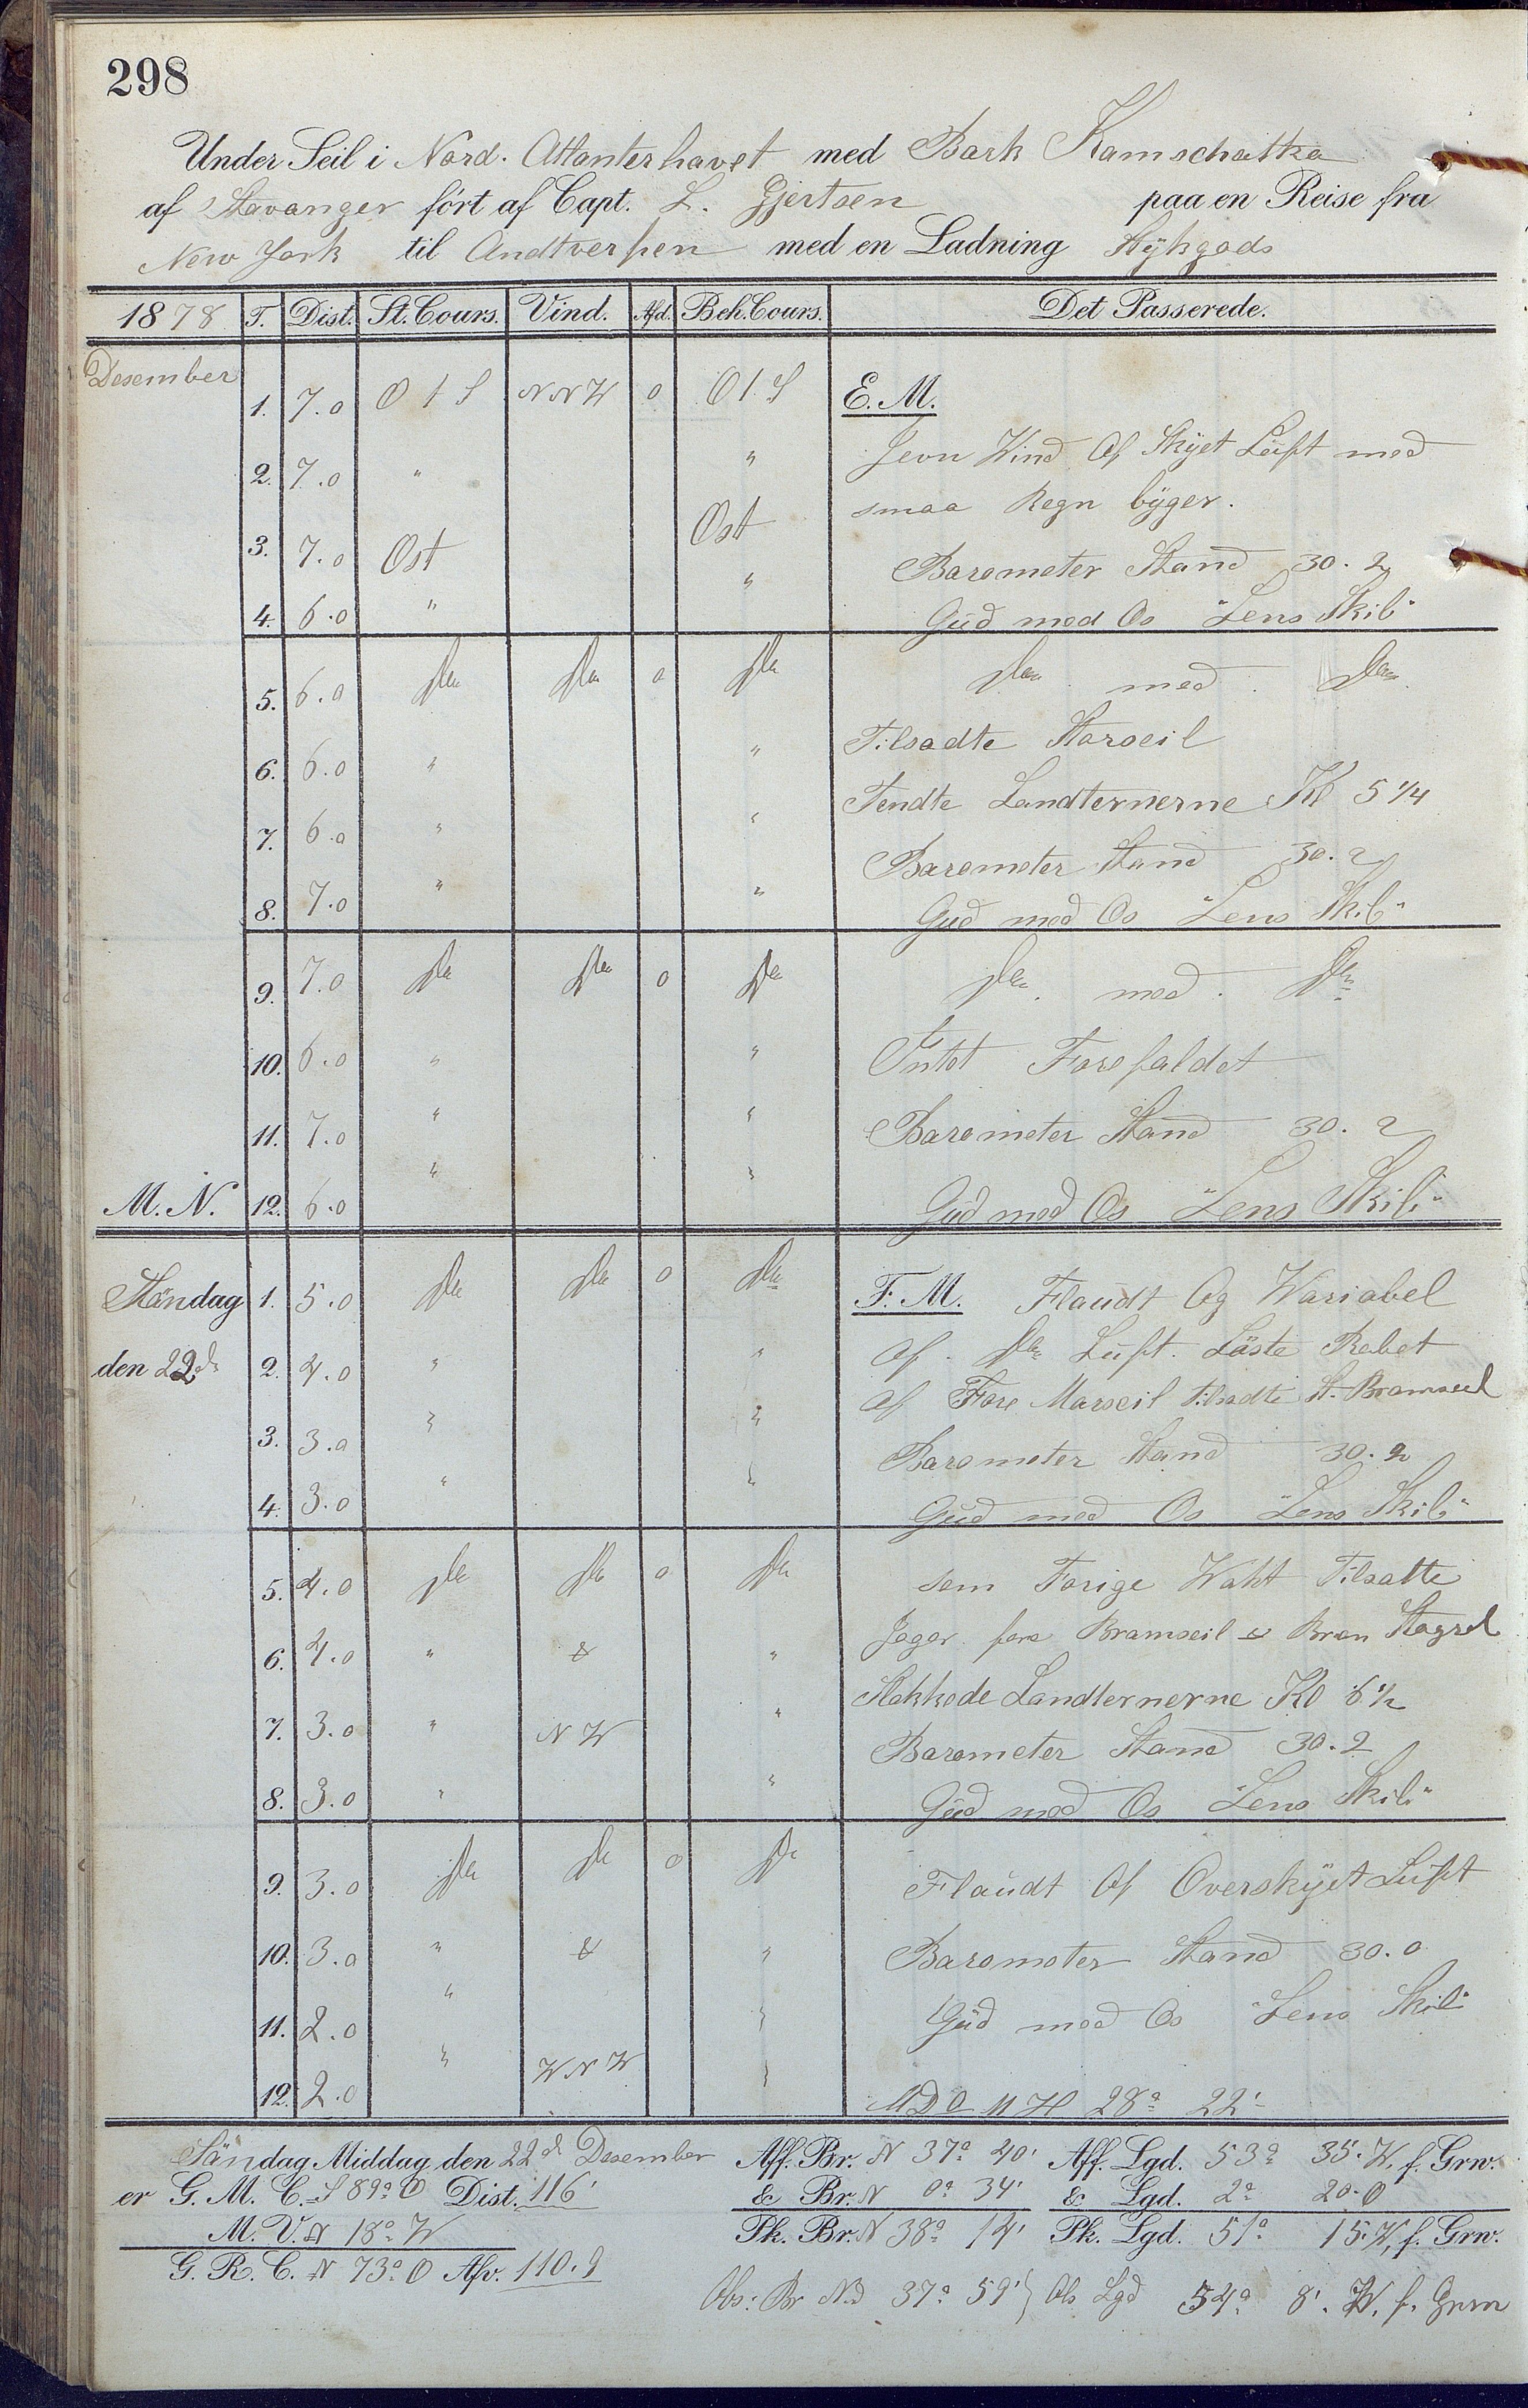 298
Under Seil i Nord. Atlanterhavet med Bark Kamschatka
af Stavanger fört af Capt. L. Gjertsen paa en Reise fra
New York til Andtverpen med en Ladning Stÿkgods
1878 T. Dist. St. Cours. Vind. Afd. Beh. Cours. Det Passerede.
Desember
1. 7.0 O t S NNW 0 O t S E. M.
2. 7.0 " " Jevn Wind Af Skÿet Luft med
smaa Regn bÿger.
3. 7.0 Ost Ost
Barometer Stand 30.2
4. 6.0 " " Gud med Os "Lens Skib"
5. 6.0 do do 0 do do med do
6. 6.0 " " Tilsadte Storseil
7. 6.0 " " Tendte Landternerne Kl 5 1/4
Barometer Stand 30.2
8. 7.0 " " Gud med Os "Lens Skib"
9. 7.0 do do 0 do do med. do
10. 6.0 " " Intet Forefaldet
11. 7.0 " " Barometer Stand 30.2
M. N. 12. 6.0 " " Gud med Os "Lens Skib"
Söndag 1. 5.0 do do 0 do F. M. Flaudt Og Wariabel
den 22d 2. 4.0 " " Af. do Luft. Löste Rebet
af Fore Marseil tilsadte St. Bramseil
3. 3.0 " " Barometer Stand 30.2
4. 3.0 " " Gud med Os "Lens Skib"
5. 4.0 do do 0 do som Forige Wakt Tilsatte
6. 4.0 " & " Jager fore Bramseil & Bram Stagsel
7. 3.0 " NW " Slokkede Landternerne Kl 6 1/2
Barometer Stand 30.2
8. 3.0 " " Gud med Os "Lens Skib"
9. 3.0 do do 0 do Flaudt Af Overskÿet Luft
10. 3.0 " & " Barometer Stand 30.0
11. 2.0 " " Gud med Os "Lens Skib"
12. 2.0 " WNW " 28° 22'
Söndag Middag den 22d Desember Aff. Br. N 37° 40' Aff. Lgd. 53° 35' W. f. Grw.
er G. M. C. S 89° O Dist. 116' & Br. N 0° 34' & Lgd. 2° 20' O
M. V. N 18° W Pk. Br. N 38° 14' Pk. Lgd. 51° 15' W. f. Grw.
G. R. C. N 73° O Afv. 110.9
Obs: Br Nd 37° 59' } Obs Lgd 54° 8' W. f. Grw